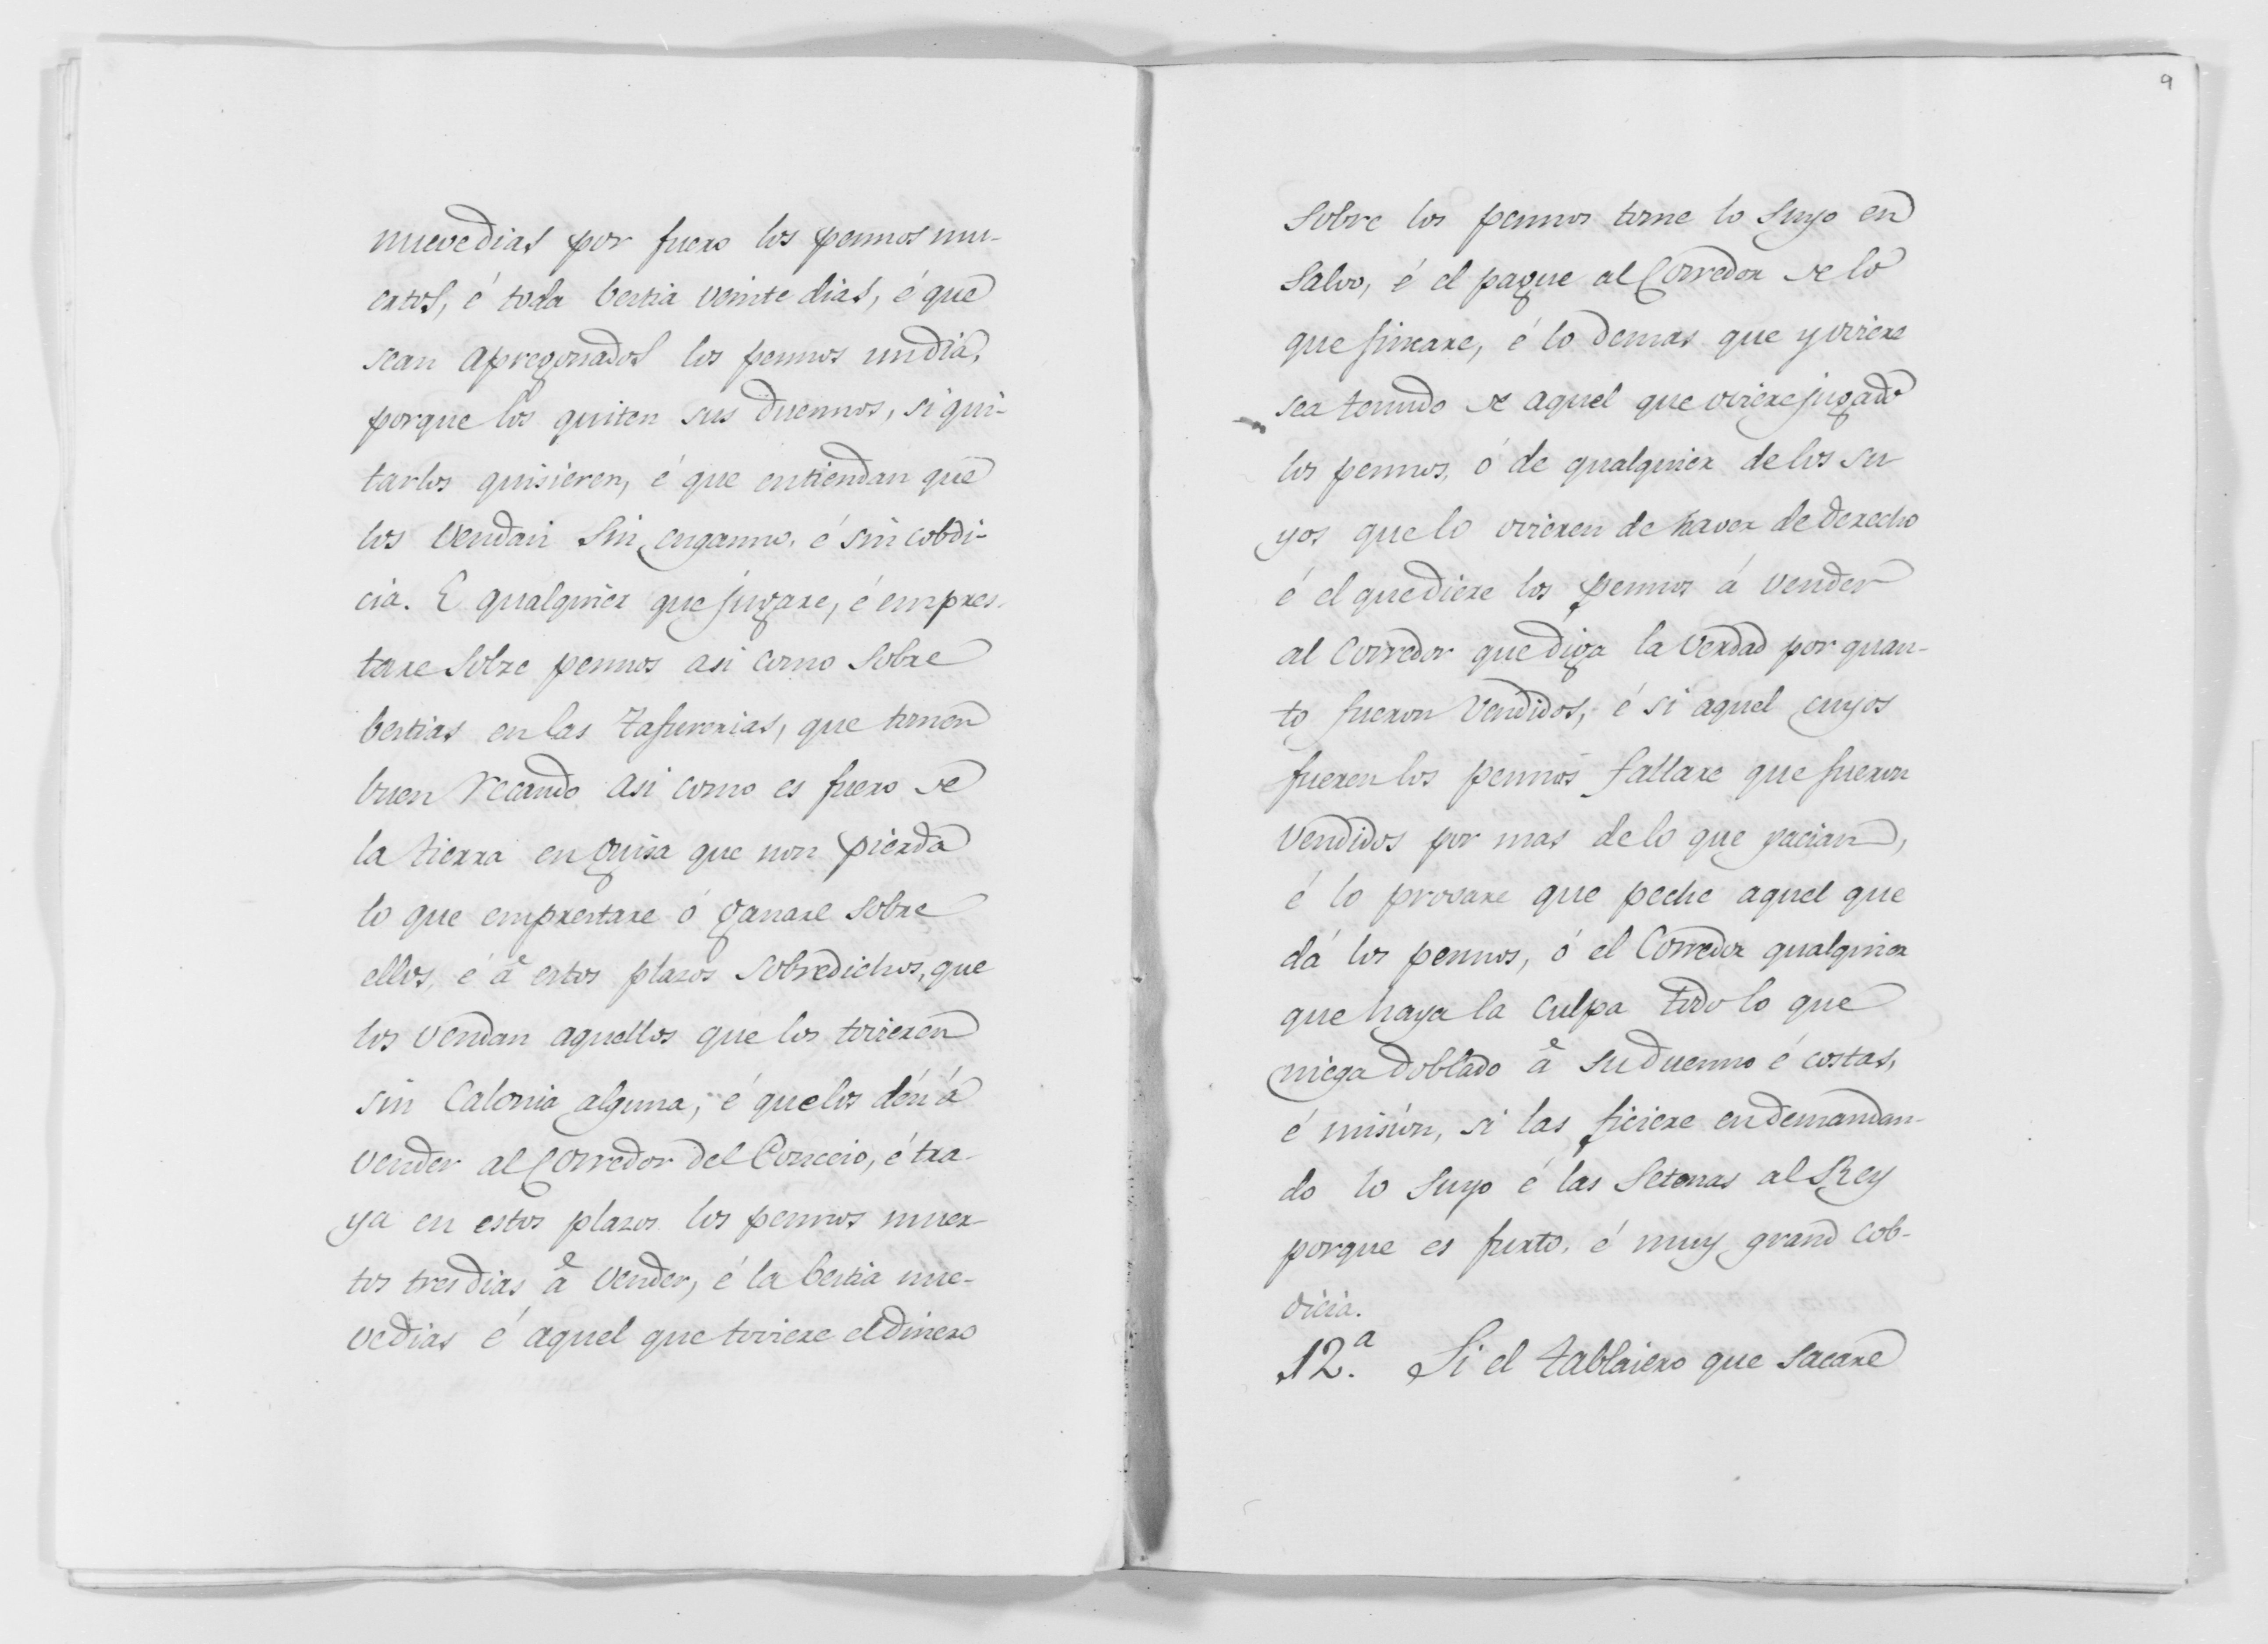 nueve dias por fuero los pennos mu-
ertos, é toda bestia veinte dias, é que
sean apregonados los pennos un dia,
porque los quiten sus duennos, si qui-
tarlos quisieren, é que entiendan que
los vendan sin enganno, é sin cobdi-
cia. E qualquier que jugare, é empres-
tare sobre pennos asi como sobre
bestias en las Tafurerias, que tomen
buen recaudo asi como es fuero de
la tierra en guisa que non pierda
lo que emprestare ó ganare sobre
ellos, é â estos plazos sobredichos, que
los vendan aquellos que los tovieren
sin calonia alguna; é que los dén á
vender al Corredor del Conceio, é tra-
ya en estos plazos los pennos muer-
tos tres dias â vender, é la bestia nue-
ve dias é aquel que toviere el dinero
9
sobre los pennos tome lo suyo en
salvo, é el pague al Corredor de lo
que fincare, é lo demas que y oviere
sea tenudo de aquel que oviere jugado
los pennos, ó de qualquier de los su
yos que lo ovieren de haver de derecho
é el que diere los pennos á vender
al Corredor que diga la verdad por quan-
to fueron vendidos, é si aquel cuyos
fueren los pennos fallare que fueron
vendidos por mas de lo que yacian,
é lo provare que peche aquel que
dá los pennos, ó el Corredor qualquier
que haya la culpa todo lo que
niega doblado â su duenno é costas,
é misión, si las ficiere en demandan-
do lo suyo é las setenas al Rey
porque es furto, é muy grand cob-
dicia.
12.ª Si el tablaiero que sacare